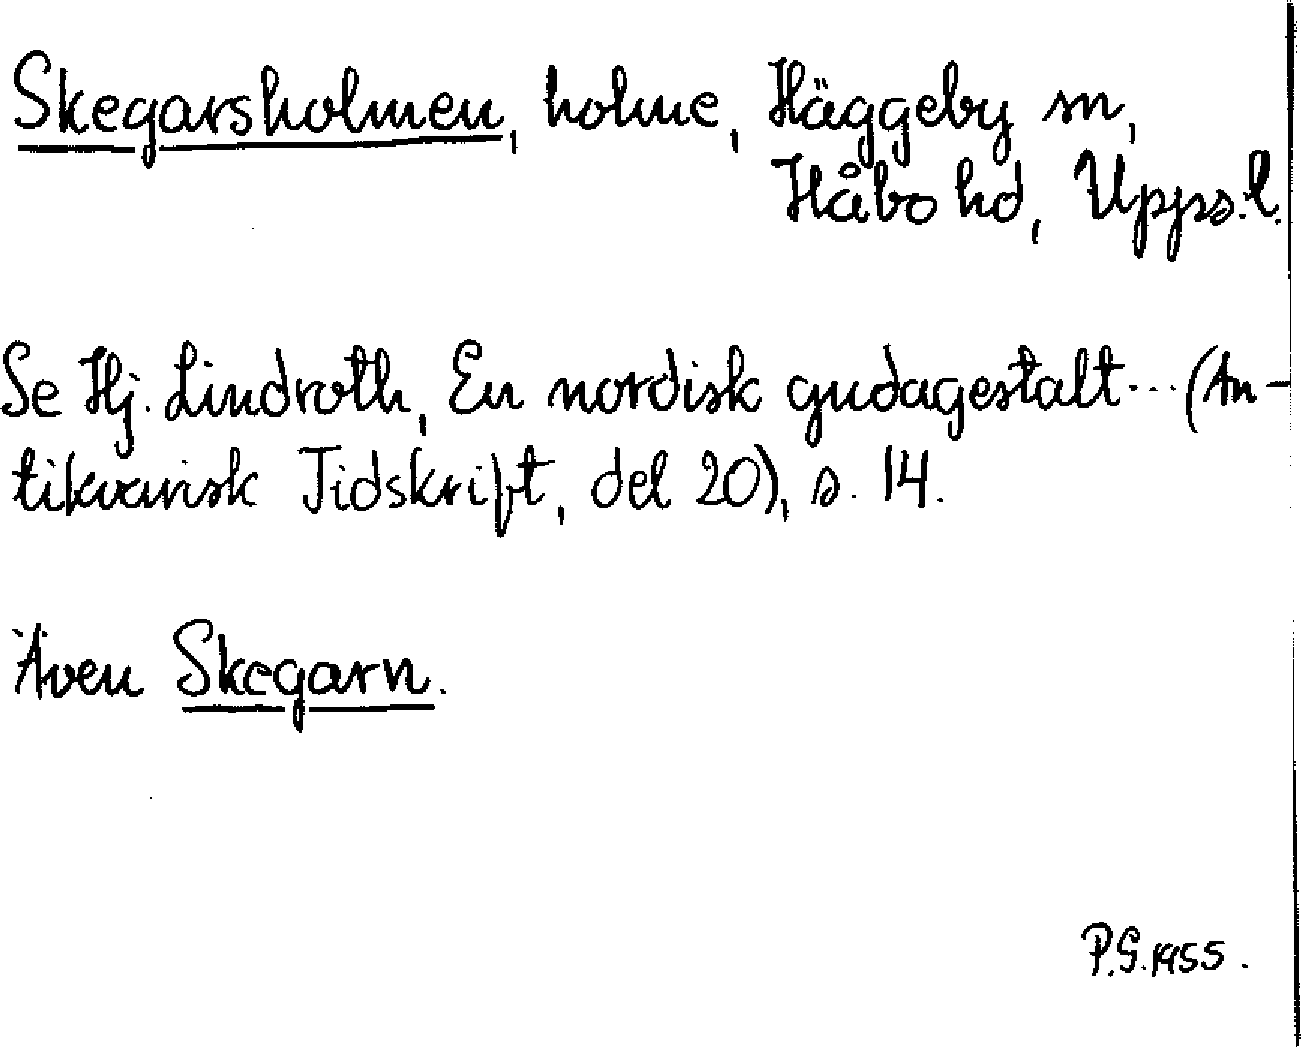 Skegarsholmen, holme, Häggeby sn,
Håbo hd, Upps.l.
Se Hj. Lindroth, En nordisk gudagestalt... (An-
tikvarisk Tidskrift, del 20), s. 14.
Även Skegarn.
P.G. 1955.